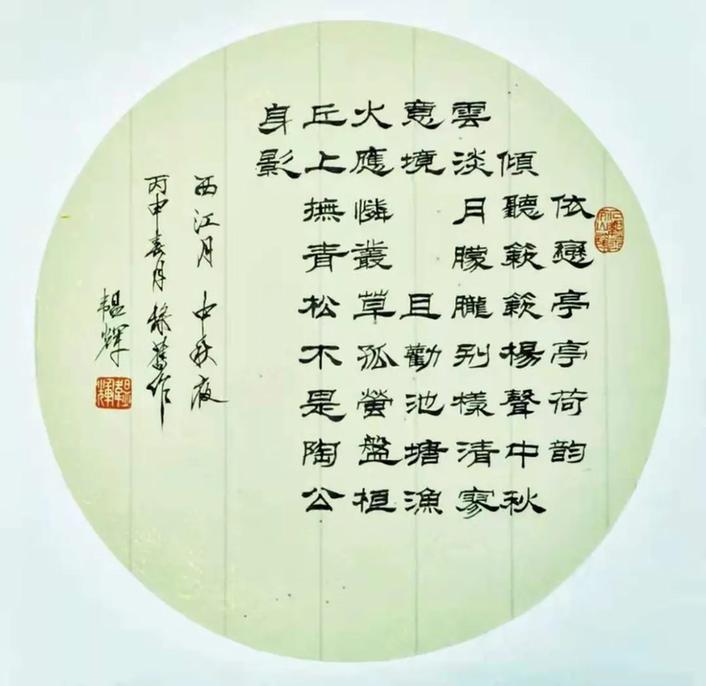 依戀亭亭荷韵
傾聽簌簌楊聲中秋
雲淡月朦朧别樣清寥
意境 且勸池塘漁
火應憐叢草孤螢盤桓
丘上撫青松不是陶公
身影
西江月 中秋夜
丙申春月錄舊作
韞輝